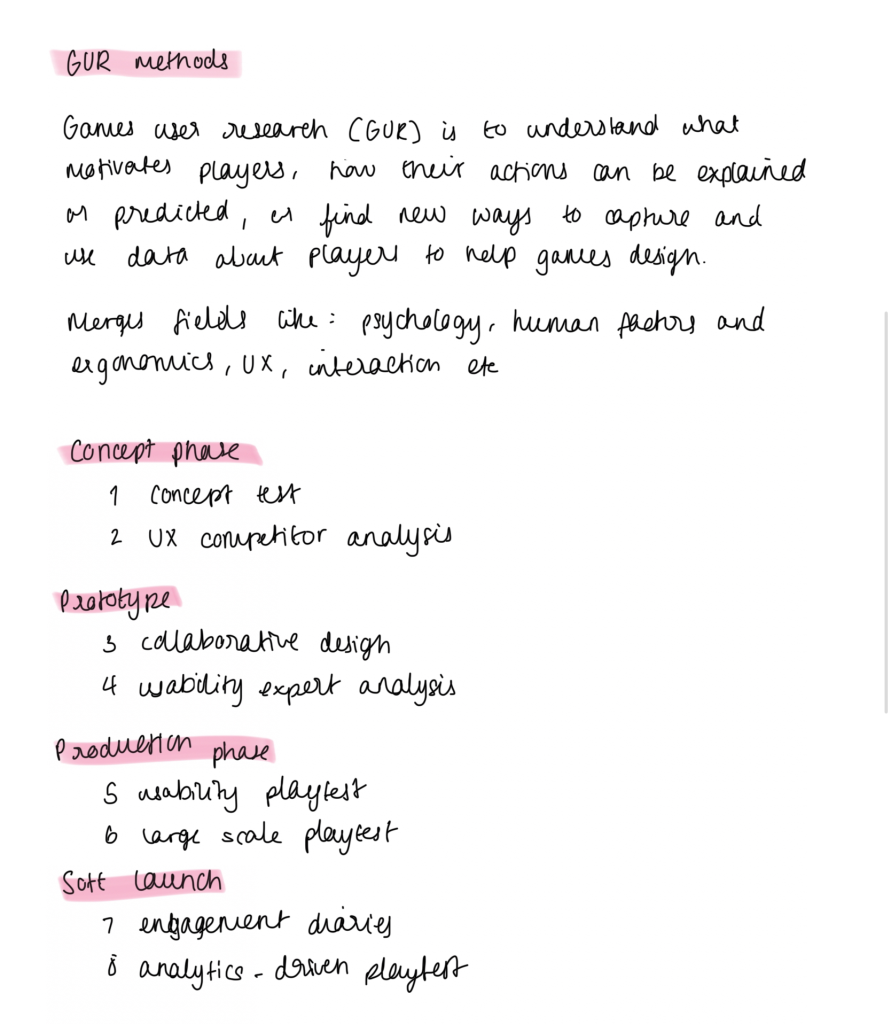 GUR methods
Games user research (GUR) is to understand what
motivates players, how their actions can be explained
or predicted, or find new ways to capture and
use data about players to help games design.
Merges fields like: psychology, human factors and
ergonomics, UX, interaction etc
Concept phase
1 concept test
2 UX competitor analysis
Prototype
3 collaborative design
4 usability expert analysis
Production phase
5 usability playtest
6 large scale playtest
Soft launch
7 engagement diaries
8 analytics - driven playtest